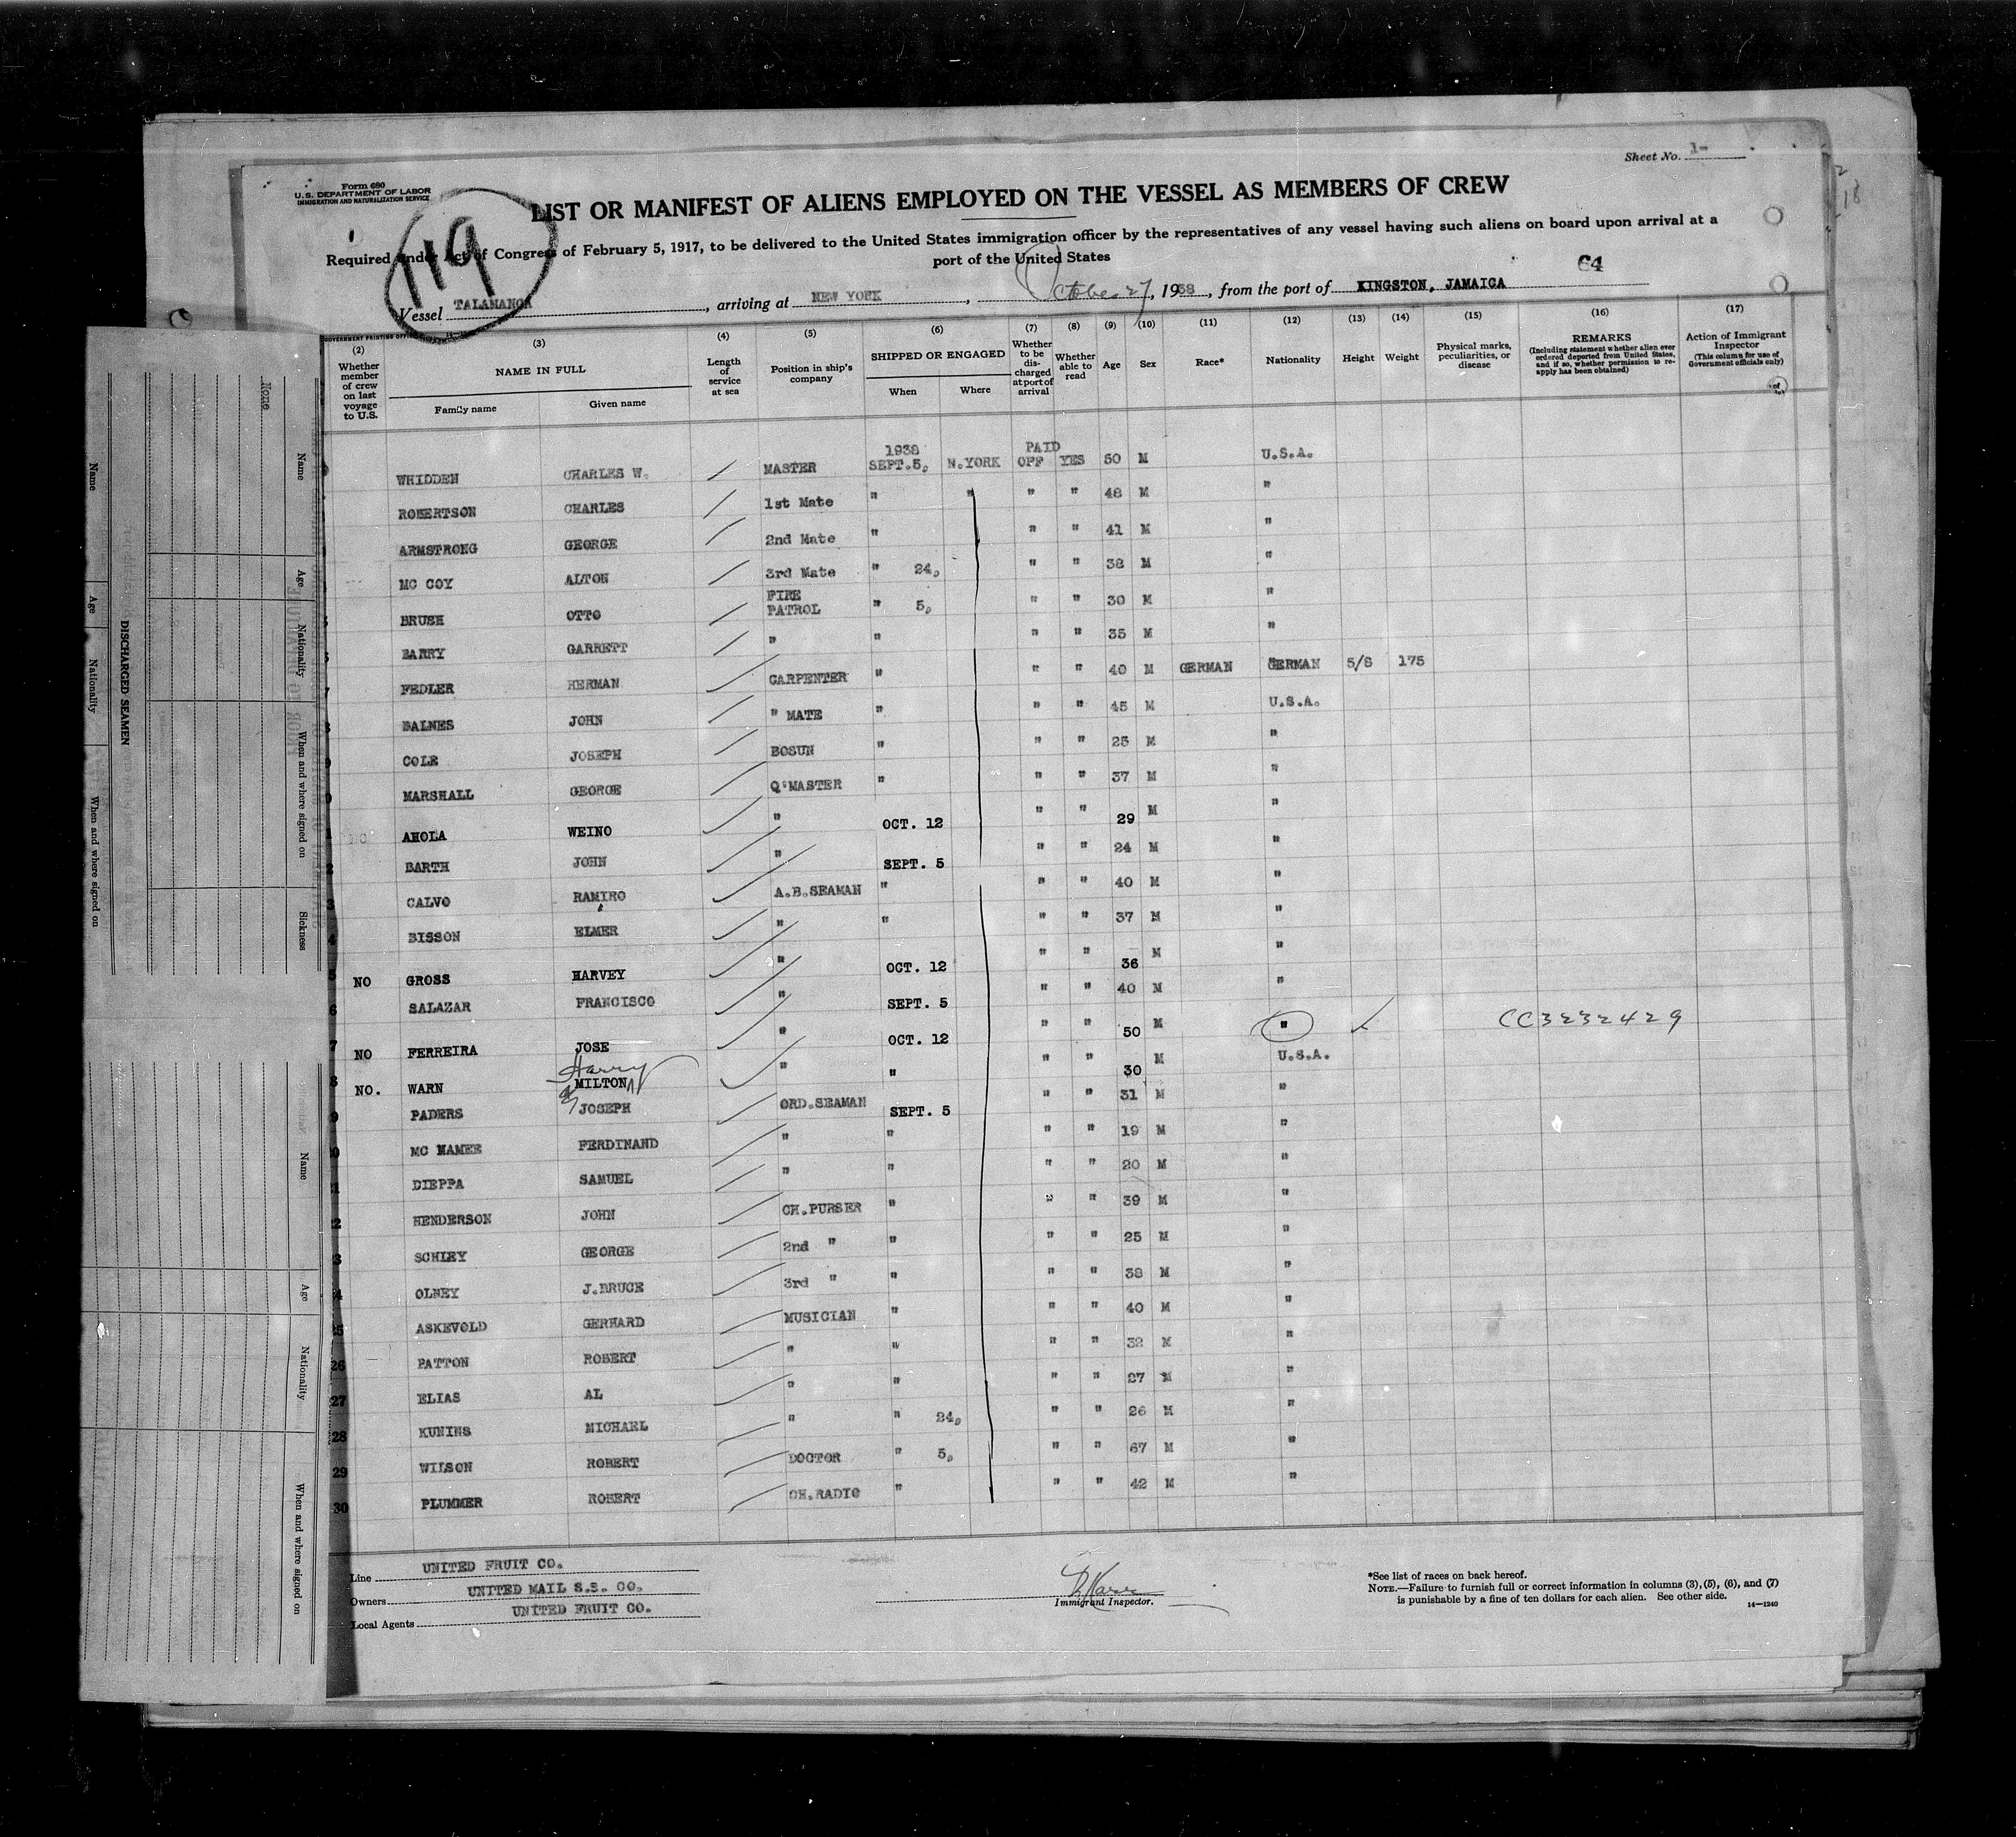 Sheet No. 1-
Form 680
U.S. DEPARTMENT OF LABOR
IMMIGRATION AND NATURALIZATION SERVICE
119
LIST OR MANIFEST OF ALIENS EMPLOYED ON THE VESSEL AS MEMBERS OF CREW
Required under Act of Congress of February 5, 1917, to be delivered to the United States immigration officer by the representatives of any vessel having such aliens on board upon arrival at a
port of the United States
64
Vessel TALAMANCA, arriving at NEW YORK, October 27, 1938, from the port of KINGSTON, JAMAICA
(2) (3) (4) (5) (6) (7) (8) (9) (10) (11) (12) (13) (14) (15) (16) (17)
Whether member of crew on last voyage to U.S.
NAME IN FULL
Family name Given name
Length of service at sea
Position in ship's company
SHIPPED OR ENGAGED
When Where
Whether to be discharged at port of arrival
Whether able to read
Age
Sex
Race*
Nationality
Height
Weight
Physical marks, peculiarities, or disease
REMARKS
(Including statement whether alien ever ordered deported from United States, and if so, whether permission to reapply has been obtained)
Action of Immigrant Inspector
(This column for use of Government officials only)
1938 PAID
WHIDDEN CHARLES W. MASTER SEPT.5, N.YORK OFF YES 50 M U.S.A.
ROBERTSON CHARLES 1st Mate " " " " 48 M "
ARMSTRONG GEORGE 2nd Mate " " " 41 M "
MC COY ALTON 3rd Mate " 24, " " 38 M "
BRUSH OTTO FIRE PATROL " 5, " " 30 M "
BARRY GARRETT " " " " 35 M "
FEDLER HERMAN CARPENTER " " " 40 M GERMAN GERMAN 5/8 175
BALNES JOHN " MATE " " " 45 M U.S.A.
COLE JOSEPH BOSUN " " " 25 M "
MARSHALL GEORGE Q'MASTER " " " 37 M "
AHOLA WEINO " OCT. 12 " " 29 M "
BARTH JOHN " SEPT. 5 " " 24 M "
CALVO RAMIRO A.B.SEAMAN " " " 40 M "
BISSON ELMER " " " " 37 M "
NO GROSS HARVEY " OCT. 12 " " 36 M "
SALAZAR FRANCISCO " SEPT. 5 " " 40 M "
NO FERREIRA JOSE " OCT. 12 " " 50 M " CC3232429
Harry
NO. WARN MILTON " " " " 30 M U.S.A.
PADERS JOSEPH ORD.SEAMAN SEPT. 5 " " 31 M "
MC NAMEE FERDINAND " " " " 19 M "
DIEPPA SAMUEL " " " " 20 M "
HENDERSON JOHN CH.PURSER " " " 39 M "
SCHLEY GEORGE 2nd " " " " 25 M "
OLNEY J.BRUCE 3rd " " " " 38 M "
ASKEVOLD GERHARD MUSICIAN " " " 40 M "
26 PATTON ROBERT " " " " 32 M "
27 ELIAS AL " " " " 27 M "
28 KUNINS MICHAEL " " 24, " " 26 M "
29 WILSON ROBERT DOCTOR " 5, " " 67 M "
30 PLUMMER ROBERT CH.RADIO " " " 42 M "
Line UNITED FRUIT CO.
Owners UNITED MAIL S.S. CO.
Local Agents UNITED FRUIT CO.
Immigrant Inspector.
*See list of races on back hereof.
NOTE.—Failure to furnish full or correct information in columns (3), (5), (6), and (7)
is punishable by a fine of ten dollars for each alien. See other side.
14—1240
DISCHARGED SEAMEN
Name
Age
Nationality
When and where signed on
None
Name
Age
Nationality
When and where signed on
Sickness
Name
Age
Nationality
When and where signed on